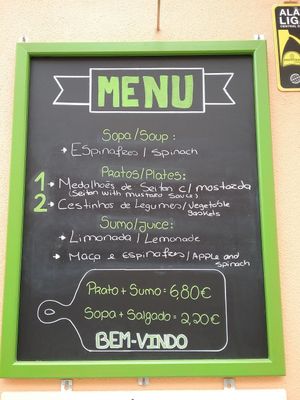 MENU
Sopa/Soup:
→ Espinafres / spinach
Pratos/Plates:
1 → Medalhões de Seitan c/ mostarda
(Seitan with mustard sauce)
2 → Cestinhos de Legumes / Vegetable
Baskets
Sumo/Juice:
→ Limonada / Lemonade
→ Maça e espinafres / Apple and
spinach
Prato + Sumo = 6,80€
Sopa + Salgado = 2,20€
BEM-VINDO